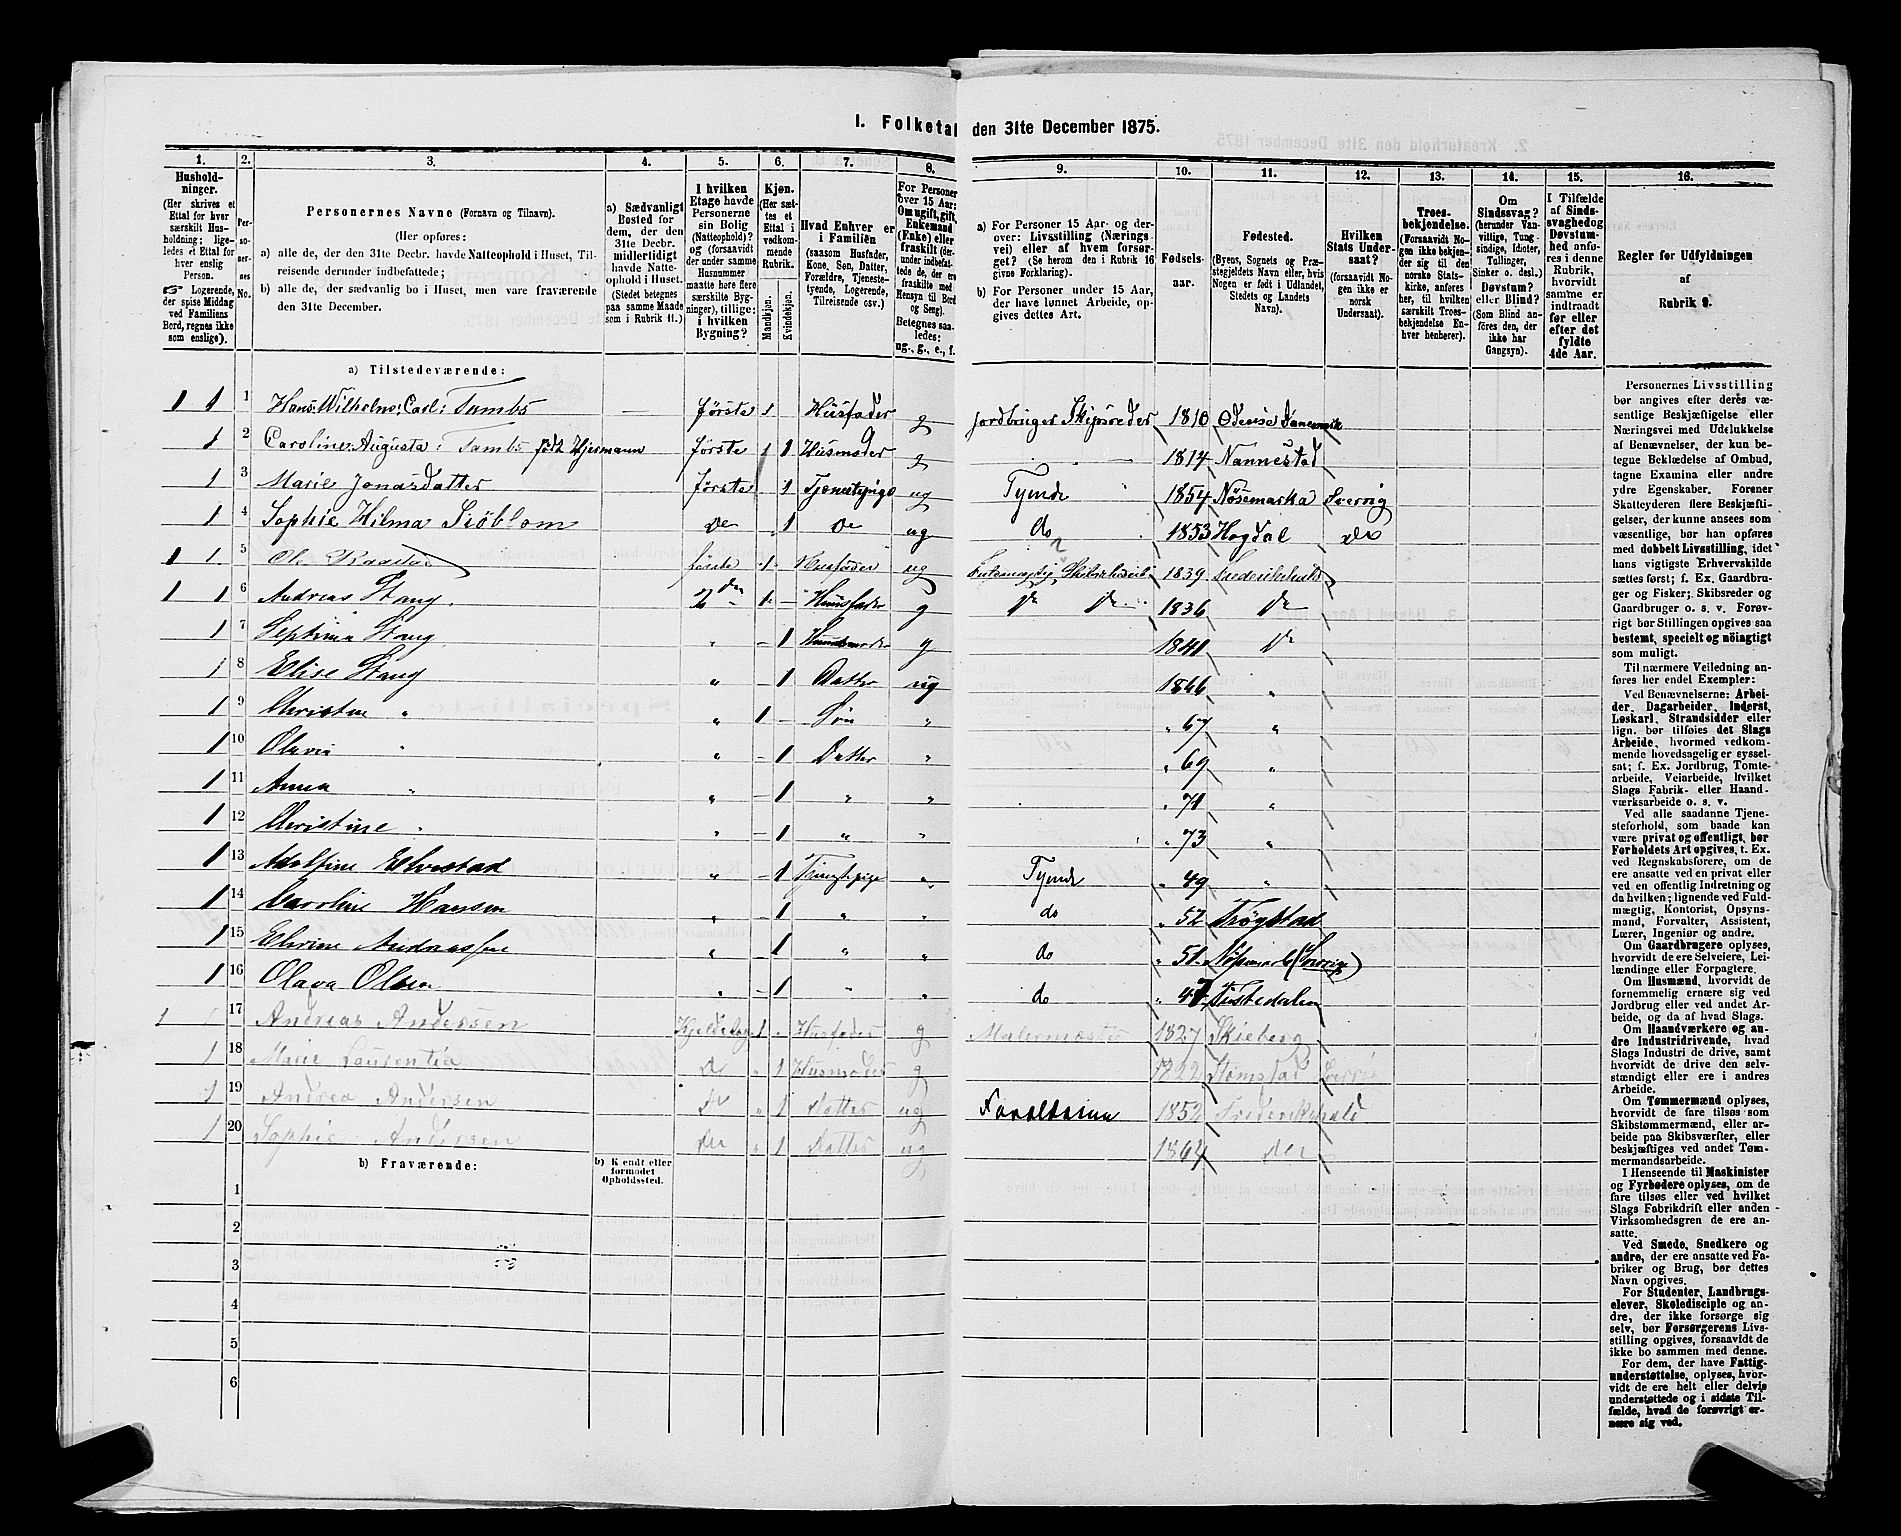 I. Folketal den 31te December 1875.
1. 2. 3. 4. 5. 6. 7. 8. 9. 10. 11. 12. 13. 14. 15. 16.
Husholdninger. (Her skrives et Ettal for hver særskilt Husholdning; ligeledes et Ettal for hver enslig Person. ☞ Logerende, der spise Middag ved Familiens Bord, regnes ikke som enslige).
Personernes No.
Personernes Navne (Fornavn og Tilnavn).
(Her opføres:
a) alle de, der den 31te Decbr. havde Natteophold i Huset, Tilreisende derunder indbefattede;
b) alle de, der sædvanlig bo i Huset, men vare fraværende den 31te December.
a) Sædvanligt Bosted for dem, der den 31te Decbr. midlertidigt havde Natteophold i Huset. (Stedet betegnes paa samme Maade som i Rubrik 11.)
I hvilken Etage havde Personerne sin Bolig (Natteophold)? og (forsaavidt der under samme Husnummer maatte høre flere særskilte Bygninger), tillige: i hvilken Bygning?
Kjøn. (Her sættes et Ettal i vedkommende Rubrik. Mandkjøn. Kvindekjøn.
Hvad Enhver er i Familien (saasom Husfader, Kone, Søn, Datter, Forældre, Tjenestetyende, Logerende, Tilreisende osv.)
For Personer over 15 Aar: Om ugift, gift, Enkemand (Enke) eller fraskilt (derunder indbefattede de, der ere fraskilte med Hensyn til Bord og Seng). Betegnes saaledes: ug., g., e., f.
a) For Personer 15 Aar- og derover: Livsstilling (Næringsvei) eller af hvem forsørget? (Se herom den i Rubrik 16 givne Forklaring).
b) For Personer under 15 Aar, der have lønnet Arbeide, opgives dettes Art.
Fødselsaar.
Fødested. (Byens, Sognets og Præstegjeldets Navn eller, hvis Nogen er født i Udlandet, Stedets og Landets Navn).
Hvilken Stats Undersaat? (forsaavidt Nogen ikke er norsk Undersaat).
Troesbekjendelse. (Forsaavidt Nogen ikke bekjender sig til den norske Statskirke, anføres her, til hvilken særskilt Troesbekjendelse Enhver henhører).
Om Sindssvag? (herunder Vanvittige, Tungsindige, Idioter, Tullinger, Sinker o. desl.) Døvstum? eller Blind? (Som Blind anføres den, der ikke har Gangsyn).
I Tilfælde af Sindssvaghed og Døvstumhed anføres i denne Rubrik, hvorvidt samme er indtraadt før eller efter det fyldte 4de Aar.
Regler for Udfyldningen af Rubrik 9.
a) Tilstedeværende:
1 1 1 Hans Wilhelm Carl: Tambs — første 1 Husfader g Jordbruger Skipsreder 1810 Odense Danemark
1 2 Caroline Augusta: Tambs født Hjermann første 1 Husmoder g 1814 Nannestad
1 3 Marie Jonasdatter første 1 Tjenestepige ug Tyende 1854 Nøsemarka Sverrig
1 4 Sophie Hilma Siöblom do 1 do ug do 1853 Hogdal do
1 1 5 Ole første 1 Husfader ug 1839 Frederikshald
1 1 6 Andreas Stang 2den 1 — Huusfader g do do 1836 do
1 7 Septima Stang " — 1 Huusmoder g 1841 do
1 8 Elise Stang " — 1 Datter ug 1866 "
1 9 Christen " " 1 — Søn " " 67 "
1 10 Olava " " — 1 Datter " " 69 "
1 11 Anna " " — 1 " " " 71 "
1 12 Christine " " — 1 " " " 73 "
1 13 Adolfine Elvestad " — 1 Tjenestepige " Tyende " 49 "
1 14 Caroline Hansen " — 1 " " do " 52 Trøgstad
1 15 Elvine Andreassen " — 1 " " do " 51 Nøsemark (Sverrig)
1 16 Olava Olsen " — 1 " " do " 47 Tistedalen
1 17 Andreas Andersen Kjelderetage 1 - Husfader g Malermester 1827 Skieberg
1 18 Marie Laurentia do " 1 Husmoder g 1822 Strømstad Sverrig
1 19 Andrea Andersen do " 1 Datter ug 1852 Frederikshald
1 20 Sophie Andersen do " 1 Datter ug 1864 do
b) Fraværende:
b) Kjendt eller formodet Opholdssted.
1
2
3
4
5
6
Personernes Livsstilling
bør angives efter deres
væsentlige Beskjæftigelse eller
Næringsvei med Udelukkelse
af Benævnelser, der kun betegne
Beklædelse af Ombud,
tagne Examina eller andre
ydre Egenskaber. Forener
Skatteyderen flere Beskjæftigelser,
der kunne ansees som
væsentlige, bør han opføres
med dobbelt Livsstilling, idet
hans vigtigste Erhvervskilde
sættes først; f. Ex. Gaardbruger
og Fisker; Skibsreder og
Gaardbruger o. s. v. Forøvrigt
bør Stillingen opgives saa
bestemt, specielt og nöiagtigt
som muligt.
Til nærmere Veiledning anføres
her endel Exempler:
Ved Benævnelserne: Arbeider,
Dagarbeider, Inderst,
Løskarl, Strandsidder eller
lign. bør tilføies det Slags
Arbeide, hvormed vedkommende
hovedsagelig er sysselsat;
f. Ex. Jordbrug, Tomtearbeide,
Veiarbeide, hvilket
Slags Fabrik- eller Haandværksarbeide
o. s. v.
Ved alle saadanne Tjenesteforhold,
som baade kan
være privat og offentligt, bør
Forholdets Art opgives, t. Ex.
ved Regnskabsførere, om de
ere ansatte ved en privat eller
ved en offentlig Indretning og
da hvilken; lignende ved Fuldmægtig,
Kontorist, Opsynsmand,
Forvalter, Assistent,
Lærer, Ingeniør og andre.
Om Gaardbrugere oplyses,
hvorvidt de ere Selveiere, Leilændinge
eller Forpagtere.
Om Husmænd, hvorvidt de
fornemmelig ernære sig ved
Jordbrug eller ved andet Arbeide,
og da af hvad Slags.
Om Haandværkere og andre
Industridrivende, hvad
Slags Industri de drive, samt
hvorvidt de drive den selvstændigt
eller ere i andres
Arbeide.
Om Tømmermænd oplyses,
hvorvidt de fare tilsøs som
Skibstømmermænd, eller arbeide
paa Skibsværfter, eller
beskjæftiges ved andet Tømmermandsarbeide.
I Henseende til Maskinister
og Fyrbødere oplyses, om de
fare tilsøs eller ved hvilket
Slags Fabrikdrift eller anden
Virksomhedsgren de ere ansatte.
Ved Smede, Snedkere og
andre, der ere ansatte ved Fabriker
og Brug, bør dettes
Navn opgives.
For Studenter, Landbrugselever,
Skoledisciple og andre,
der ikke forsørge sig
selv, bør Forsørgerens Livsstilling
opgives, forsaavidt de
ikke bo sammen med denne.
For dem, der have Fattigunderstøttelse,
oplyses, hvorvidt
de ere helt eller delvis
understøttede og i sidste Tilfælde,
hvad de forøvrigt ernære
sig ved.